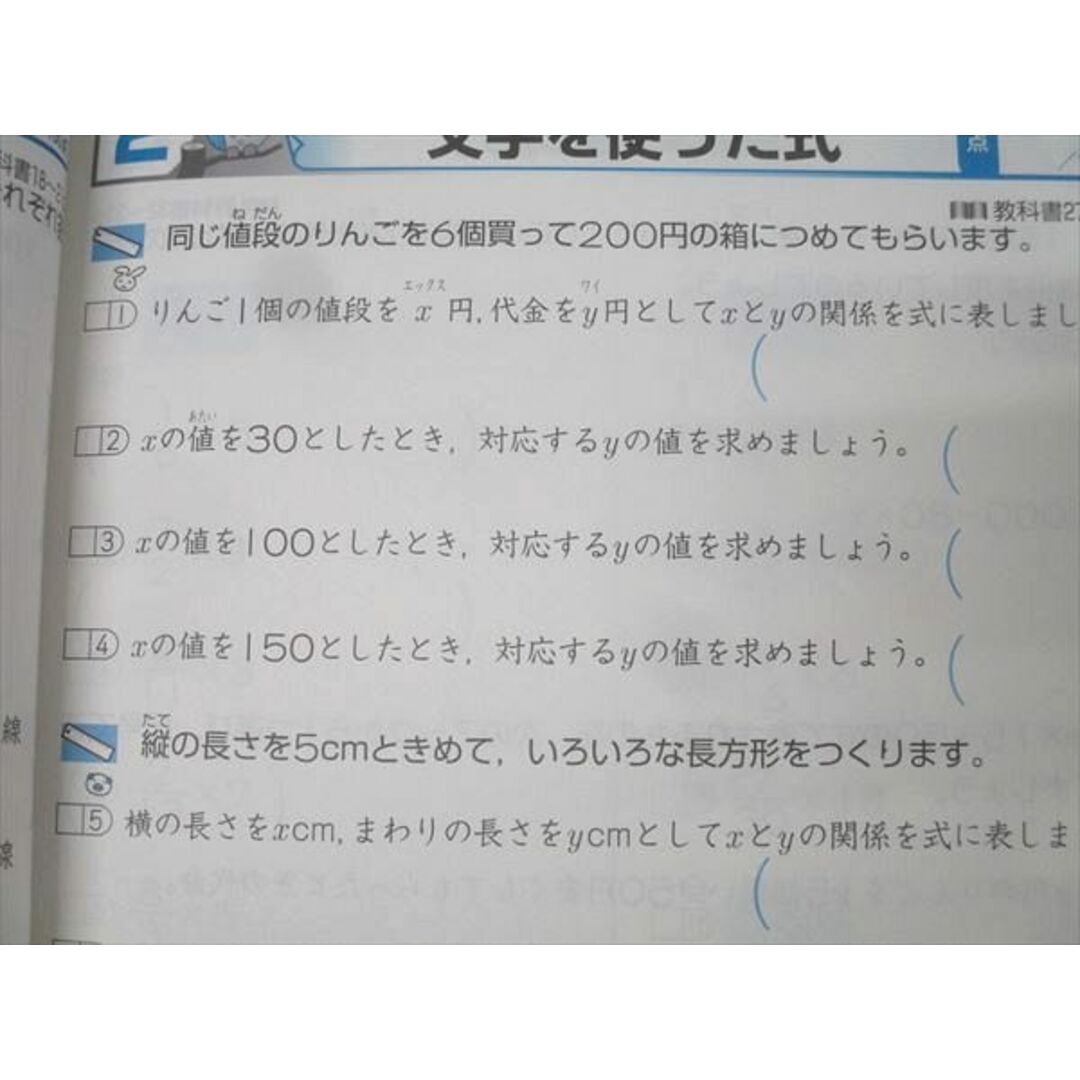 2 文字を使った式 点
科書18~2
れぞれ
教科書27
ね だん
同じ値段のりんごを6個買って200円の箱につめてもらいます。
エックス ワイ
1 りんご1個の値段をx円,代金をy円としてxとyの関係を式に表しまし
(
あたい
2 xの値を30としたとき,対応するyの値を求めましょう。 (
3 xの値を100としたとき,対応するyの値を求めましょう。 (
4 xの値を150としたとき,対応するyの値を求めましょう。 (
線
たて
縦の長さを5cmときめて,いろいろな長方形をつくります。
5 横の長さをxcm,まわりの長さをycmとしてxとyの関係を式に表しま
線
(